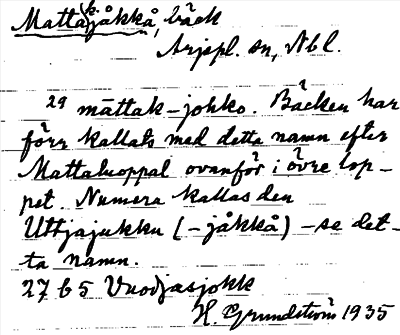 Mattakjåkkå, bäck
Arjepl. sn, Nbl.
29 māttak-johko. Bäcken har
förr kallats med detta namn efter
Mattaluoppal ovanför i övre lop-
pet. Numera kallas den
Uttjajukku (-jåkkå) - se det-
ta namn.
27 B5 Vuodjasjokk
H. Grundström 1935